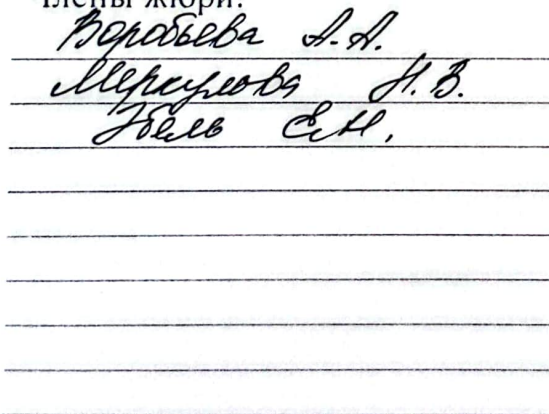 Члены жюри:
Воробьева А.А.
Меркулова Н.В.
Эбель Е.Н.